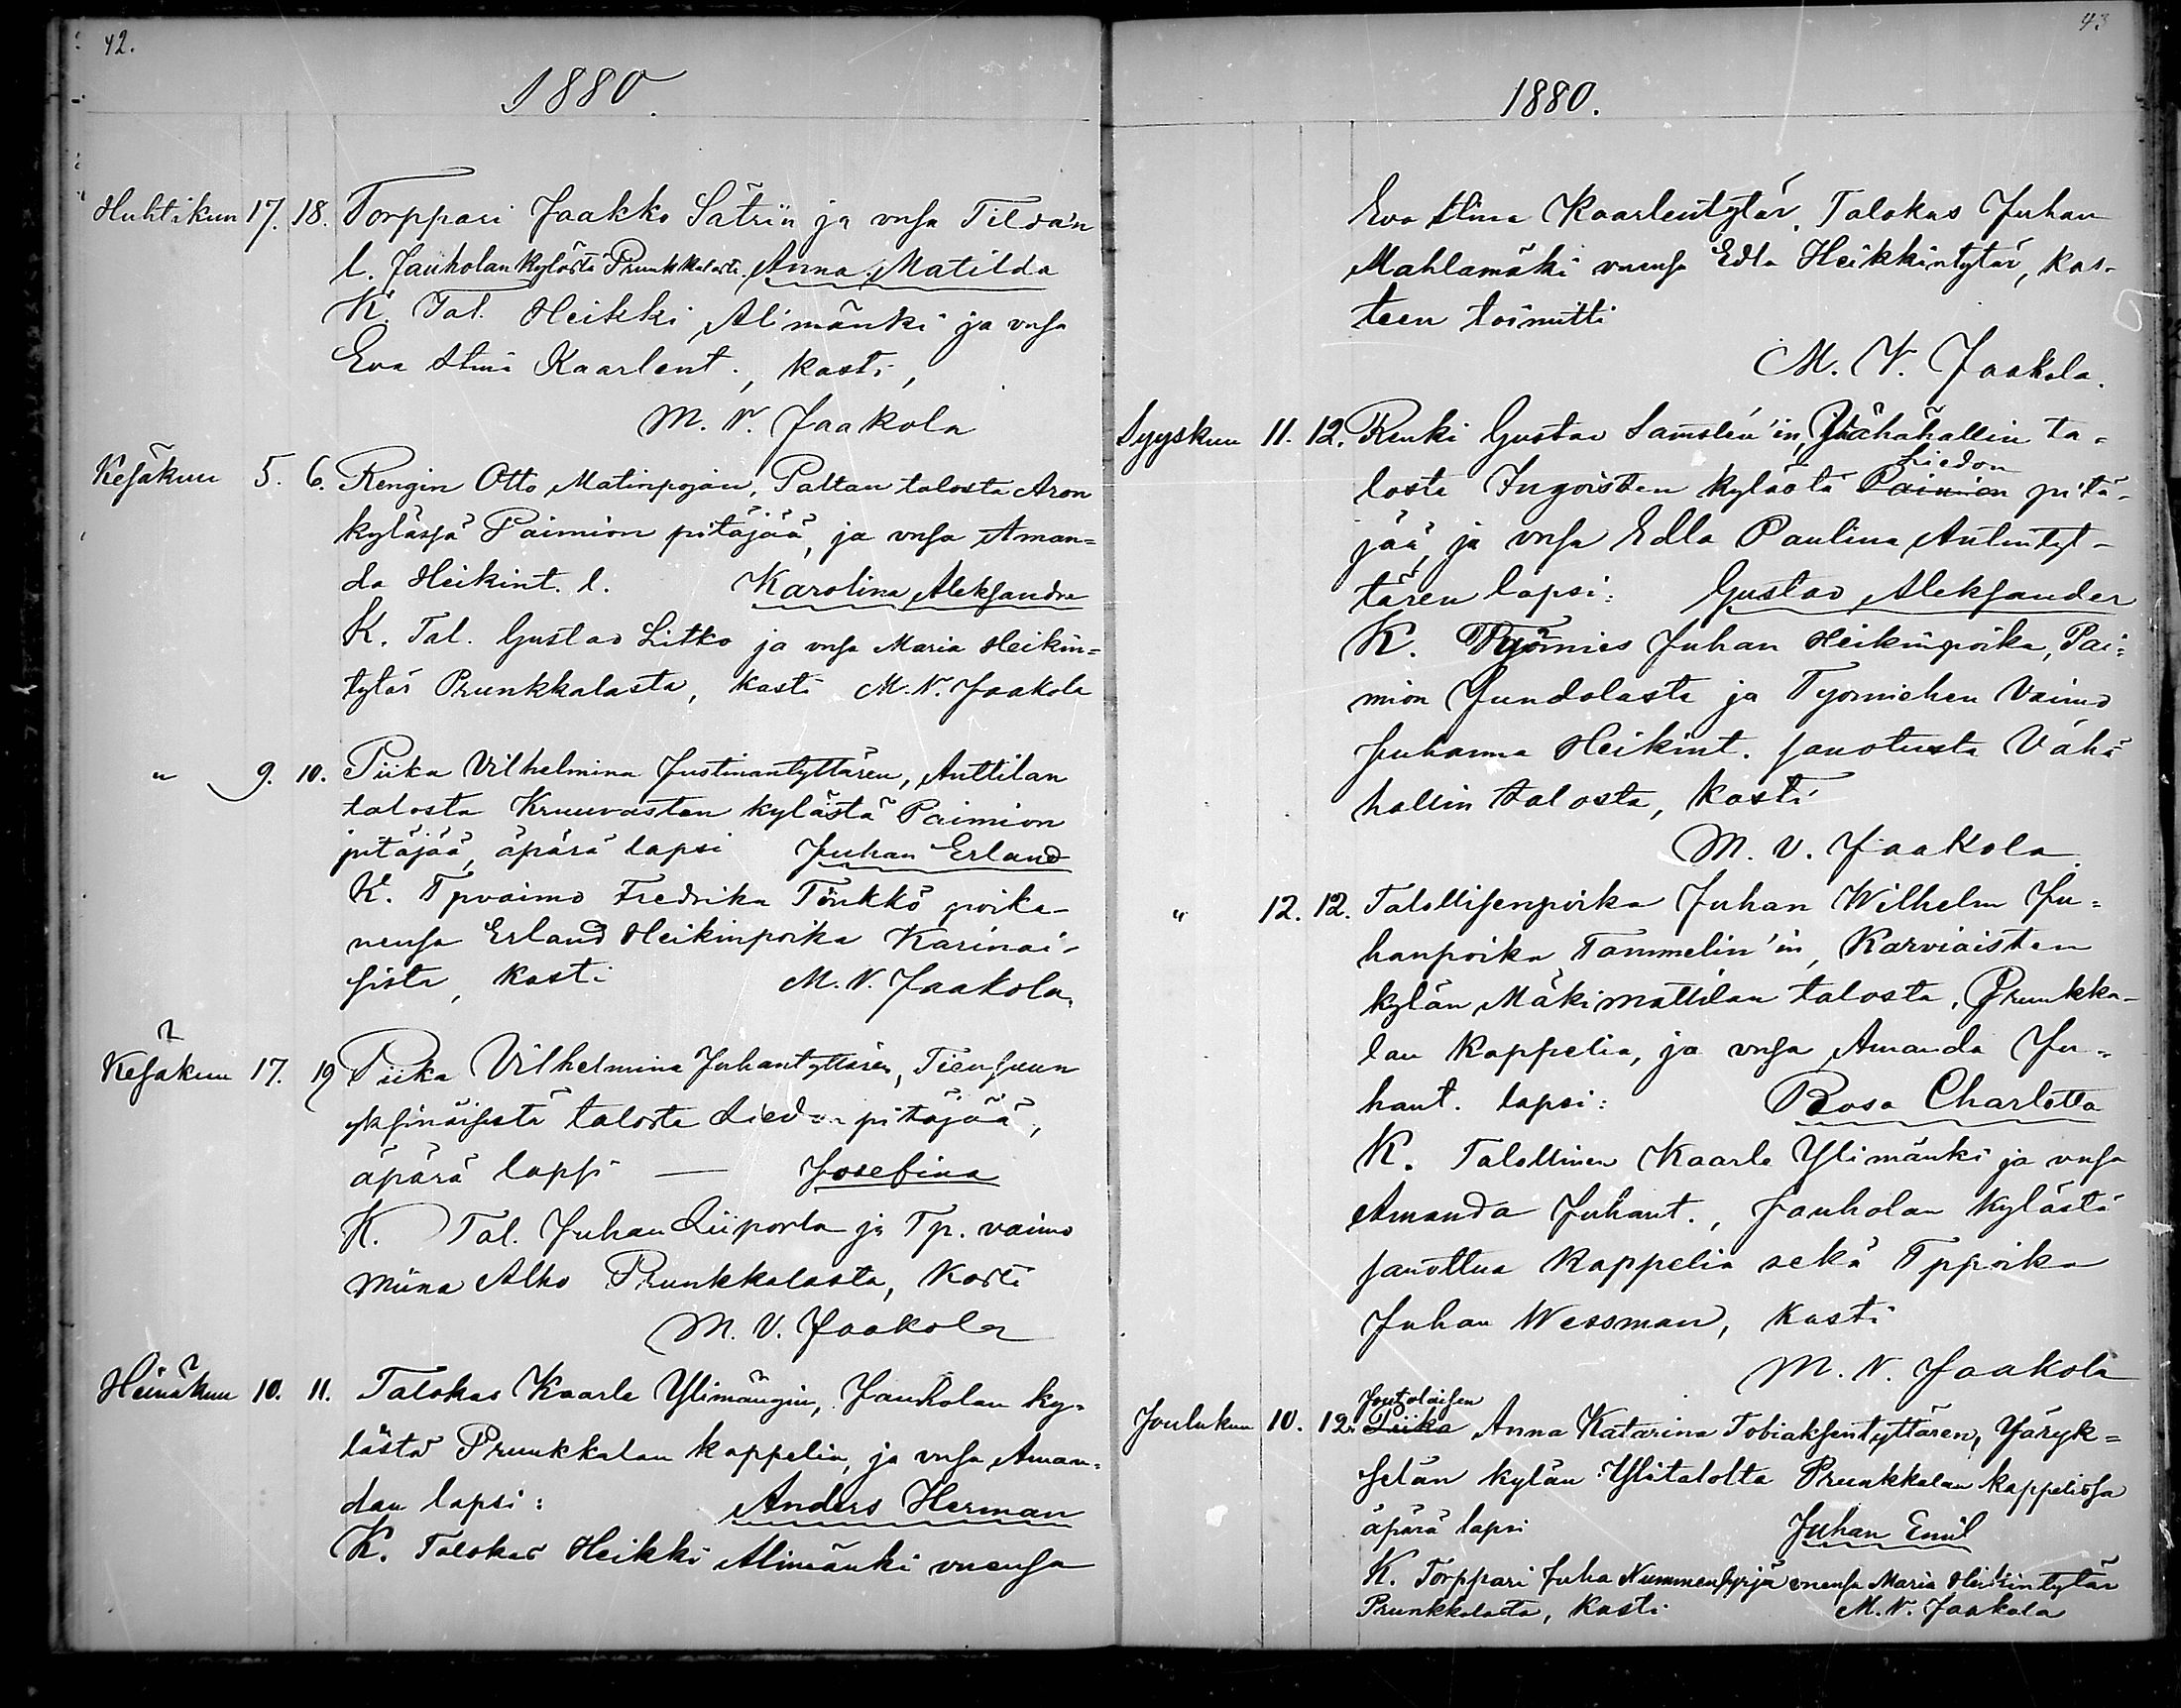 42.
1880.
Huhtikun 17. 18. Torppari Jaakko Sätrin ja vnsa Tilda'n
l. Jauholan kylästä Prunkkalasta. Anna Matilda
K. Tal. Heikki Alimänki ja vnsa
Eva Stina Kaarlent., kasti,
M. V. Jaakola
Kesäkuu 5. 6. Rengin Otto Matinpojan, Paltan talosta Aron
kylässä Paimion pitäjää, ja vnsa Aman=
da Heikint. l. Karolina Aleksandra
K. Tal. Gustav Litko ja vnsa Maria Heikin=
tytär Prunkkalasta, kasti M. V. Jaakola
" 9. 10. Piika Vilhelmina Justinantyttären, Anttilan
talosta Kruuvasten kylästä Paimion
pitäjää, äpärä lapsi Juhan Erland
K. Tpvaimo Fredrika Tönkkö poika-
nensa Erland Heikinpoika Karinai-
sista, kasti M. V. Jaakola.
Kesäkuu 17. 19 Piika Vilhelmina Juhantyttären, Tiensuun
yksinäisestä talosta Liedon pitäjää,
äpärä lapsi — Josefina
K. Tal. Juhan Liiporla ja Tp. vaimo
Miina Alho Prunkkalasta, Kasti
M. V. Jaakola
Heinäkuu 10. 11. Talokas Kaarle Ylimängin, Jauholan ky-
lästä Prunkkalan kappelia, ja vnsa Aman-
dan lapsi: Anders Herman
K. Talokas Heikki Alimänki vnensa
43
1880.
Eva Stina Kaarlentytär, Talokas Juhan
Mahlamäki vnensa Edla Heikkintytär, kas-
teen toimitti
M. V. Jaakola.
Syyskuu 11. 12. Renki Gustav Samslén'in, Vähähallin ta-
Liedon
losta Ingoisten kylästä Paimion pitä-
jää, ja vnsa Edla Paulina Antintyt-
tären lapsi: Gustav Aleksander
K. Työmies Juhan Heikinpoika, Pai-
mion Jundolasta ja Työmiehen Vaimo
Juhanna Heikint. sanotusta Vähä
hallin talosta, kasti
M. V. Jaakola
" 12. 12. Talollisenpoika Juhan Wilhelm Ju-
hanpoika Tammelin'in, Karviaisten
kylän Mäkimattilan talosta, Prunkka-
lan Kappelia, ja vnsa Amanda Ju-
hant. lapsi: Rosa Charlotta
K. Talollinen Kaarle Ylimänki ja vnsa
Amanda Juhant., Jauholan Kylästä
sanottua Kappelia sekä Tppoika
Juhan Wessman, kasti
M. V. Jaakola
Joutolaisen
Joulukuu 10. 12. Piika Anna Katarina Tobiaksentyttären, Yäryk=
selän kylän Ylitalolta Prunkkalan kappelissa
äpärä lapsi Juhan Emil
K. Torppari Juha Nummensyrjä vnensa Maria Heikintytär
Prunkkalasta, Kasti M. V. Jaakola